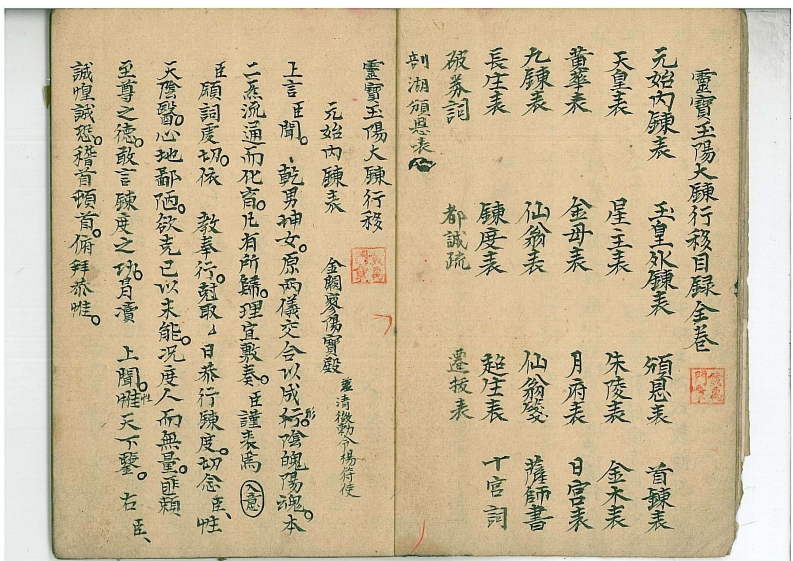 靈寳玉陽大錬行移目録全巻
元始内錬表 玉皇外錬表 頒恩表 首錬表
天皇表 星主表 朱陵表 金木表
黄華表 金母表 月府表 日宫表
九錬表 仙翁表 仙翁牋 薩師書
長庄表 錬度表 超生表 十宫詞
破券詞 都誠疏 遷拔表
湖頒恩表
靈寳玉陽大錬行移
元始内錬表 金闕寥陽寳殿 清微勅令楊符使
上言臣聞。乾男坤女。原两儀交合以成形。陰魄陽魂。本
二炁流通而化育。凡有所歸。理宜敷奏。臣謹表為 入意
臣願詞虔切。依 教奉行。對取厶日恭行錬度。切念臣性
天陰翳。心地鄙陋。欲克己以未能。况度人而無量。匪頼
至尊之德。敢言錬度之功。冐凟 上聞。惟天下鑒。右臣、
誠惶誠恐。稽首頓首。俯拜恭惟。